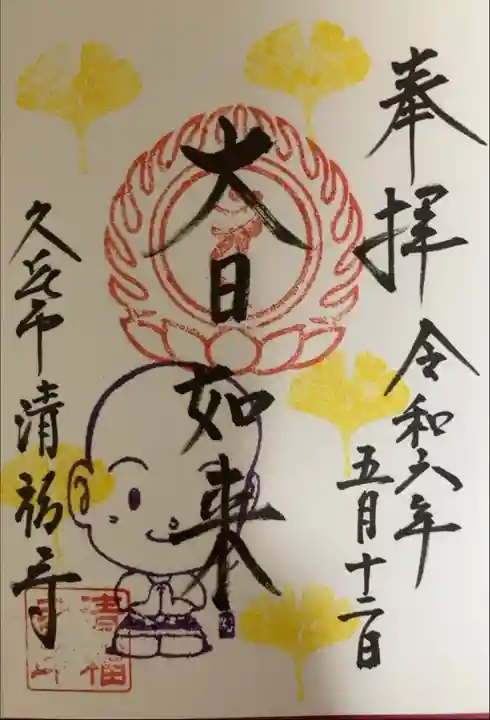 奉拝
令和六年
五月十二日
大日如来
久喜市清福寺